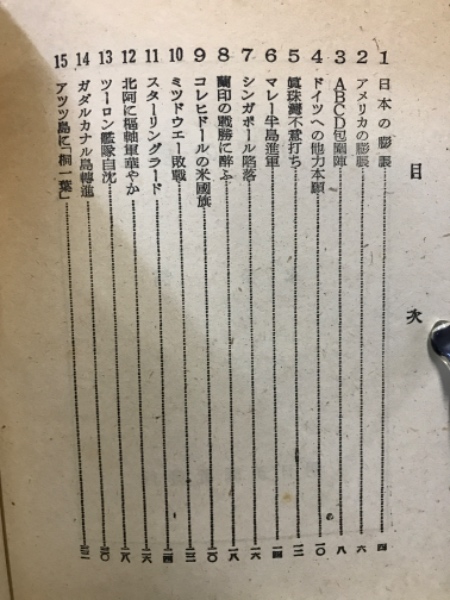 目次
1 日本の膨脹 四
2 アメリカの膨脹 六
3 ABCD包圍陣 八
4 ドイツへの他力本願 一〇
5 眞珠灣不意打ち 一二
6 マレー半島進軍 一四
7 シンガポール陷落 一六
8 蘭印の戰勝に醉ふ 一八
9 コレヒドールの米國旗 二〇
10 ミツドウエー敗戰 二四
11 スターリングラード 二六
12 北阿に樞軸軍華やか 二八
13 ツーロン艦隊自沈 三〇
14 ガダルカナル島轉進
15 アツツ島に「桐一葉」